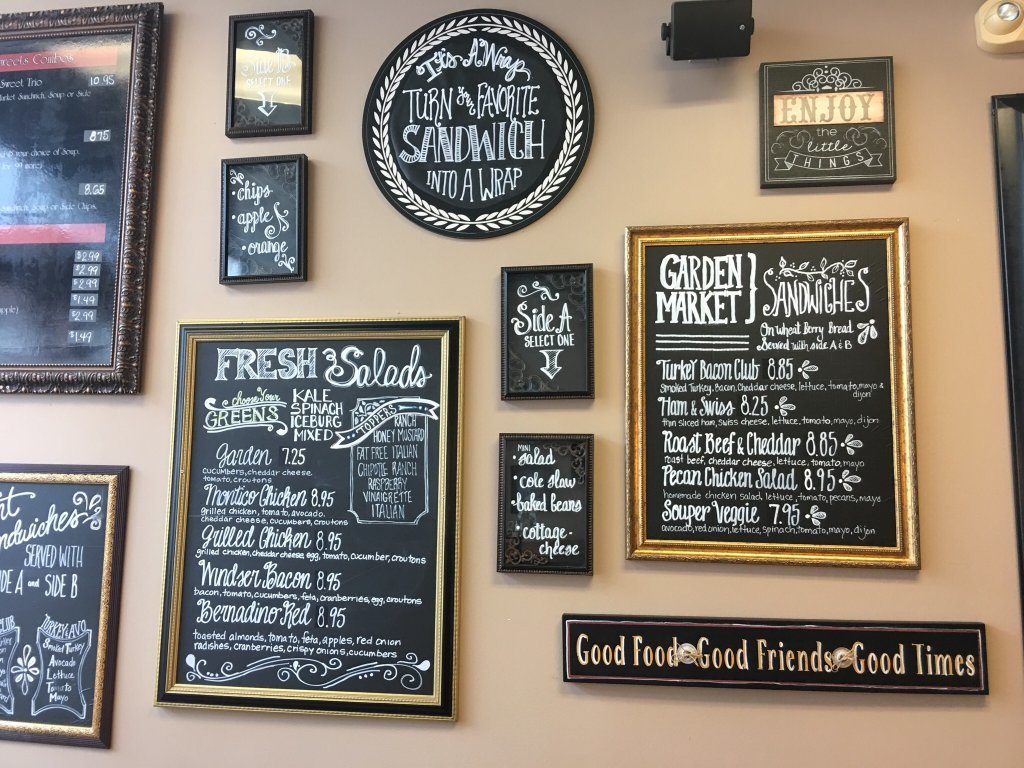 Sweets Combos
Sweet Trio 10.95
Market Sandwich, Soup or Side
8.75
your choice of Soup.
8.65
Sandwich, Soup or Side Chips.
$2.99
$2.99
$2.99
$1.49
$2.99
$1.49
SELECT ONE
• chips
• apple
• orange
It's A Wrap
TURN your FAVORITE
SANDWICH
INTO A WRAP
ENJOY
the
little
THINGS
Side A
SELECT ONE
MINI
• salad
• cole slaw
• baked beans
• cottage-
cheese
FRESH Salads
choose your
GREENS
KALE
SPINACH
ICEBURG
MIXED
TOPPERS
RANCH
HONEY MUSTARD
FAT FREE ITALIAN
CHIPOTLE RANCH
RASPBERRY
VINAIGRETTE
ITALIAN
Garden 7.25
cucumbers, cheddar cheese
tomato, croutons
Montico Chicken 8.95
grilled chicken, tomato, avocado,
cheddar cheese, cucumbers, croutons
Grilled Chicken 8.95
grilled chicken, cheddar cheese, egg, tomato, cucumber, croutons
Windsor Bacon 8.95
bacon, tomato, cucumbers, feta, cranberries, egg, croutons
Bernadino Red 8.95
toasted almonds, tomato, feta, apples, red onion
radishes, cranberries, crispy onions, cucumbers
GARDEN
MARKET
SANDWICHES
On Wheat Berry Bread
Served with side A & B
Turkey Bacon Club 8.85
Smoked Turkey, Bacon, Cheddar cheese, lettuce, tomato, mayo &
dijon
Ham & Swiss 8.25
thin sliced ham, swiss cheese, lettuce, tomato, mayo, dijon
Roast Beef & Cheddar 8.85
roast beef, cheddar cheese, lettuce, tomato, mayo
Pecan Chicken Salad 8.95
homemade chicken salad, lettuce, tomato, pecans, mayo
Souper Veggie 7.95
avocado, red onion, lettuce, spinach, tomato, mayo, dijon
SERVED WITH
SIDE A and SIDE B
TURKEY & AVO
Smoked Turkey
Avocado
Lettuce
Tomato
Mayo
Good Food Good Friends Good Times